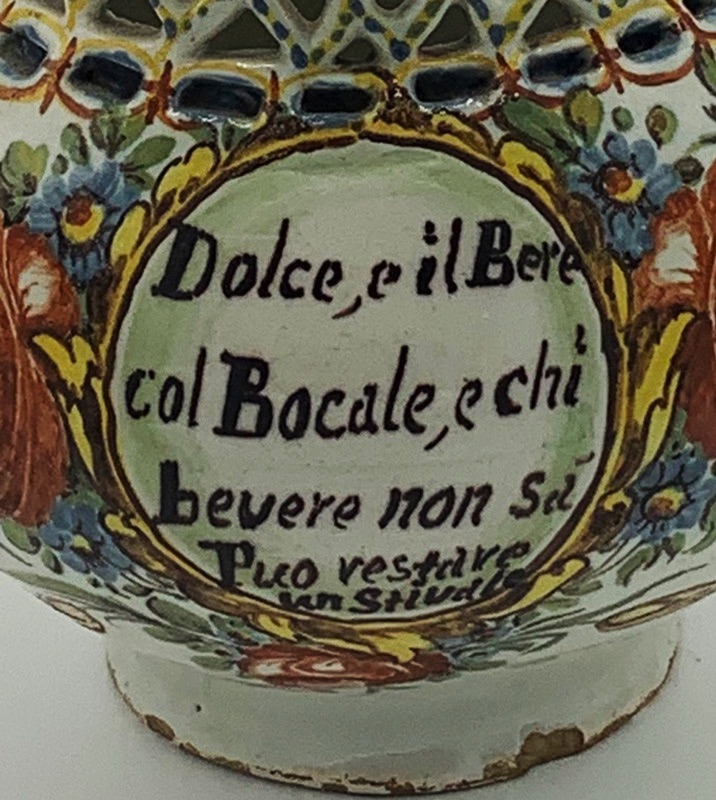 Dolce, e il Bere
col Bocale, e chi
bevere non Sà
Puo restare
un Stivale